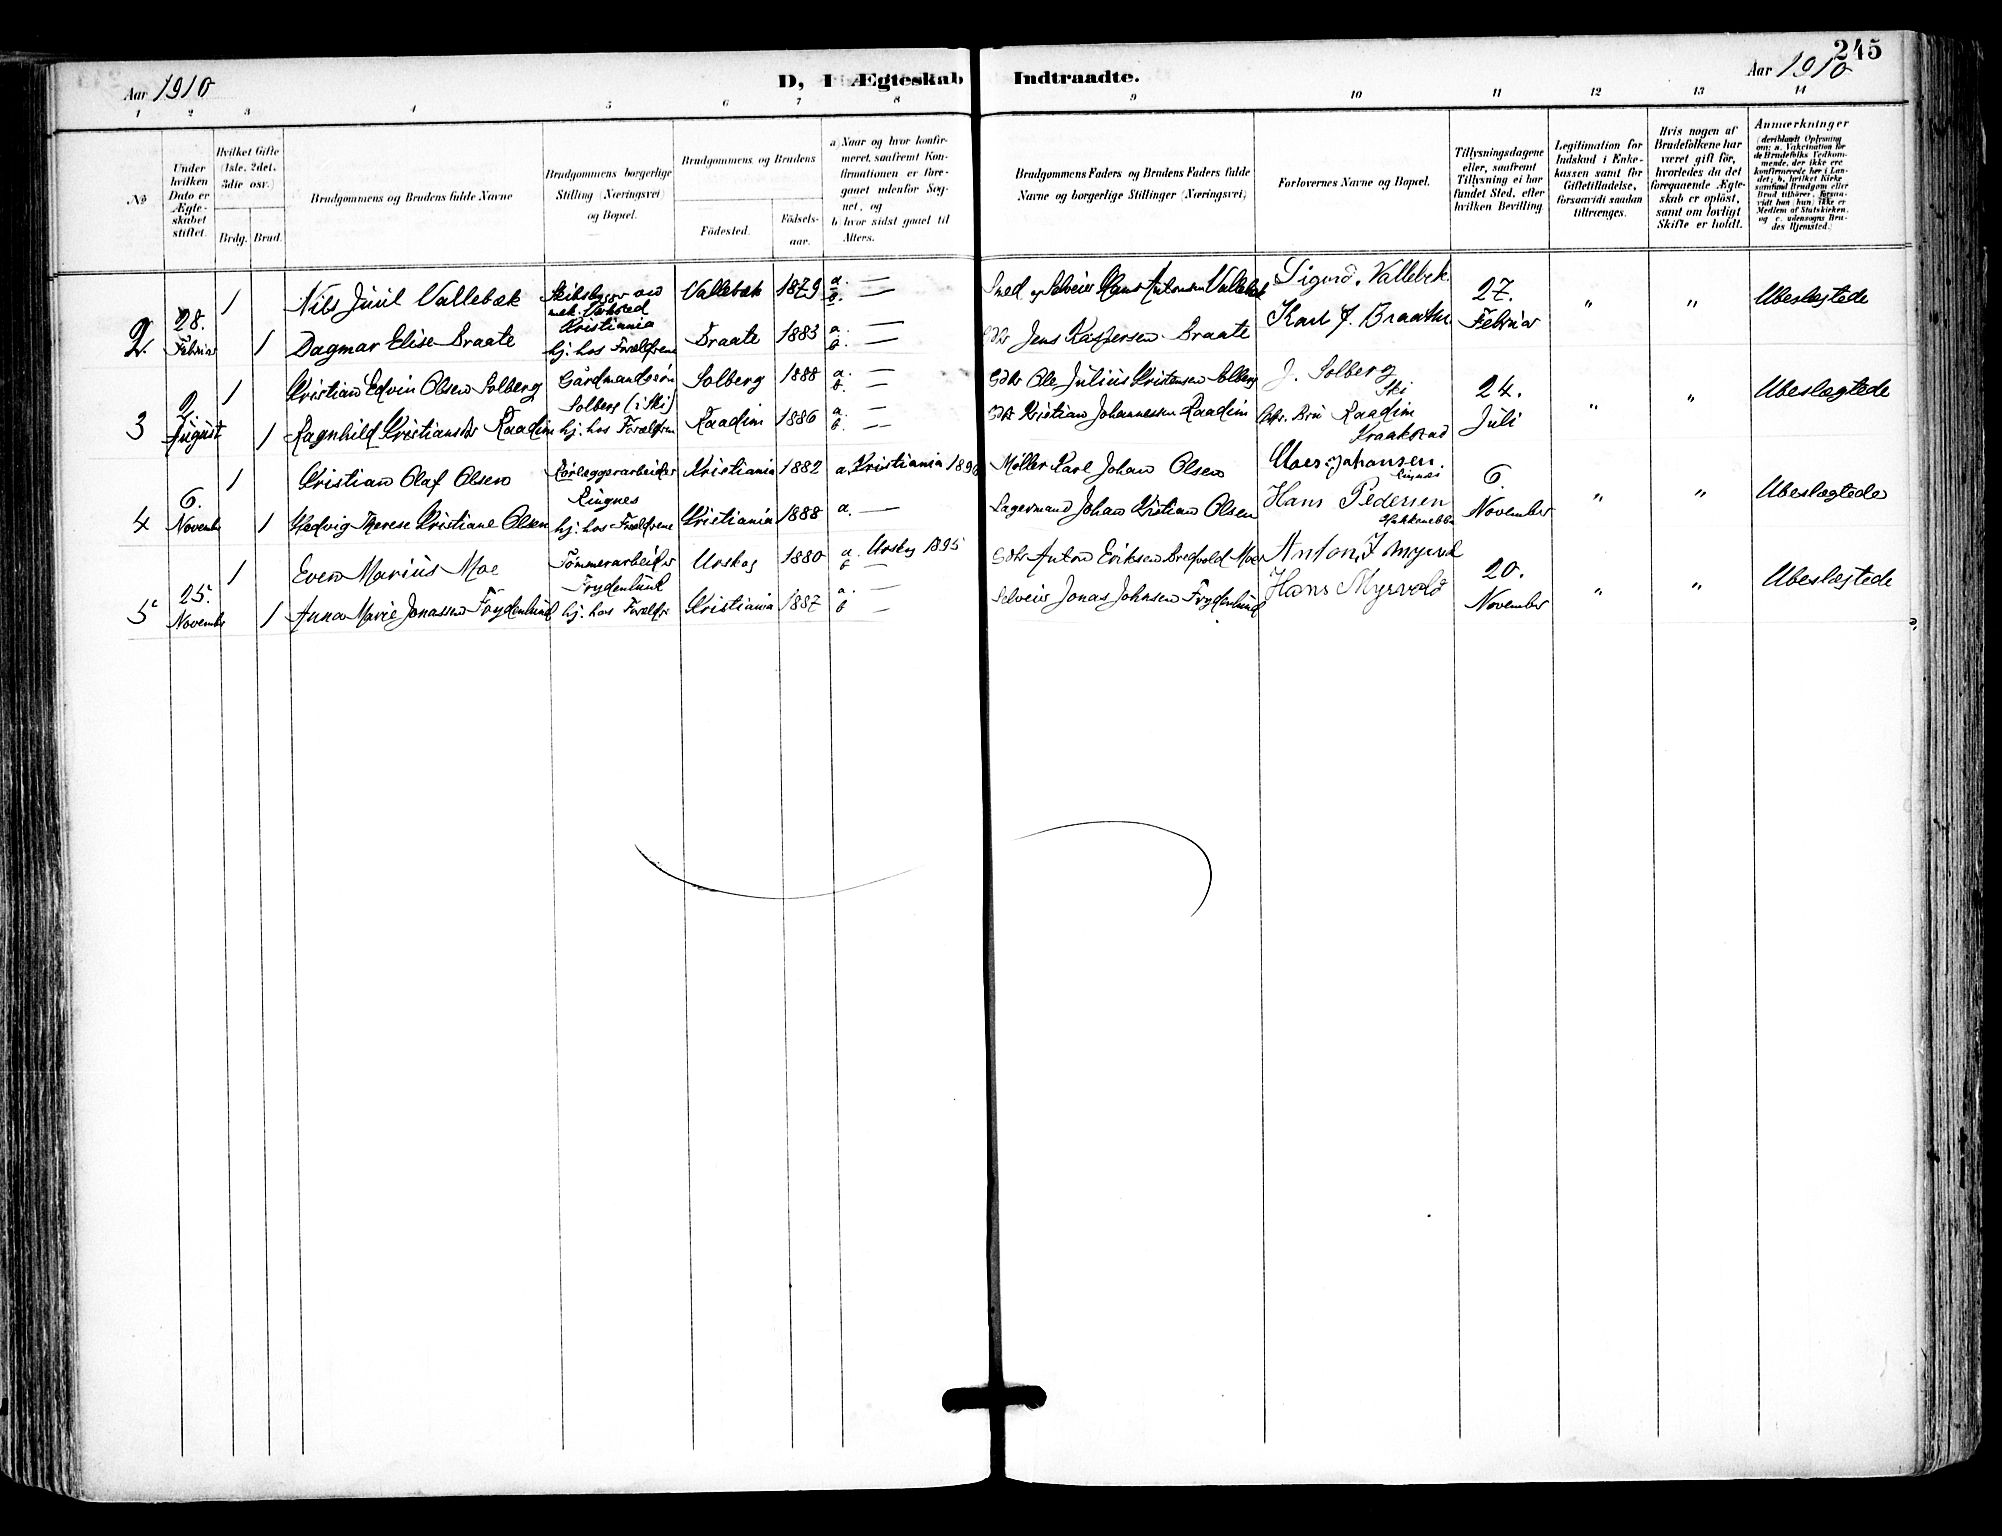 245
Aar 1910
D, I Ægteskab Indtraadte.
Aar 1910
1 2 3 4 5 6 7 8 9 10 11 12 13 14
No
Under hvilken Dato er Ægteskabet stiftet.
Hvilket Gifte (1ste, 2det, 3die osv.)
Brdg. Brud.
Brudgommens og Brudens fulde Navne
Brudgommens borgerlige Stilling (Næringsvei) og Bopæl.
Brudgommens og Brudens
Fødested. Fødselsaar.
a) Naar og hvor konfirmeret, saafremt Konfirmationen er foregaaet udenfor Sognet, og
b) hvor sidst gaaet til Alters.
Brudgommens Faders og Brudens Faders fulde Navne og borgerlige Stillinger (Næringsvei)
Forlovernes Navne og Bopæl.
Tillysningsdagene eller, saafremt Tillysning ei har fundet Sted, efter hvilken Bevilling
Legitimation for Indskud i Enkekassen samt for Giftetilladelse, forsaavidt saadan tiltrænges.
Hvis nogen af Brudefolkene har været gift før, hvorledes da det foregaaende Ægteskab er opløst, samt om lovligt Skifte er holdt.
Anmærkninger
(deriblandt Oplysning om: a. Vakcination for de Brudefolks Vedkommende, der ikke ere konfirmerede her i Landet; b. hvilket Kirkesamfund Brudgom eller Brud tilhører, forsaavidt han (hun) ikke er Medlem af Statskirken, og c. udensogns Brudes Hjemsted.)
2. 28. Februar 1 Nils Juul Vallebæk Skibsbygger ved mek. Verksted Kristiania Vallebæk 1879 a. — b. — Smed og Selveier Hans Antonsen Vallebæk Sigurd Vallebek 27. Februar " " Ubeslægtede
1 Dagmar Elise Braate hj. hos Forældrene Braate 1883 a. — b. — Gdbr Jens Kaspersen Braate Karl J. Braathe
3 2 August 1 Kristian Edvin Olsen Solberg Gårdmandssøn Solberg (i Ski) Solberg 1888 a. — b. — Gdbr Ole Julius Kristensen Solberg J. Solberg Ski 24. Juli " " Ubeslægtede
1 Ragnhild Kristiansdr Raadim hj. hos Forældrene Raadim 1886 a. — b. — Gdbr Kristian Johannessen Raadim Raadim Kraakstad
4 6. November 1 Kristian Olaf Olsen Rørlæggerarbeider Ringnes Kristiania 1882 a. Kristiania Møller Karl Johan Olsen Johansen. Ringnes 6. November " " Ubeslægtede
1 Hedvig Therese Kristiane Olsen hj. hos Forældrene Kristiania 1888 a. — Lagermand Johan Kristian Olsen Hans Pedersen
5 25. November 1 Even Marius Moe Tømmerarbeider Frydenlund Urskog 1880 a. Urskog 1895 b — Gdbr Anton Eriksen Moe Anton 20. November " " Ubeslægtede
1 Anna Marie Jonassen Frydenlund hj. hos Forældre Kristiania 1887 a. — b — Selveier Jonas Johnsen Frydenlund Hans Myrvold